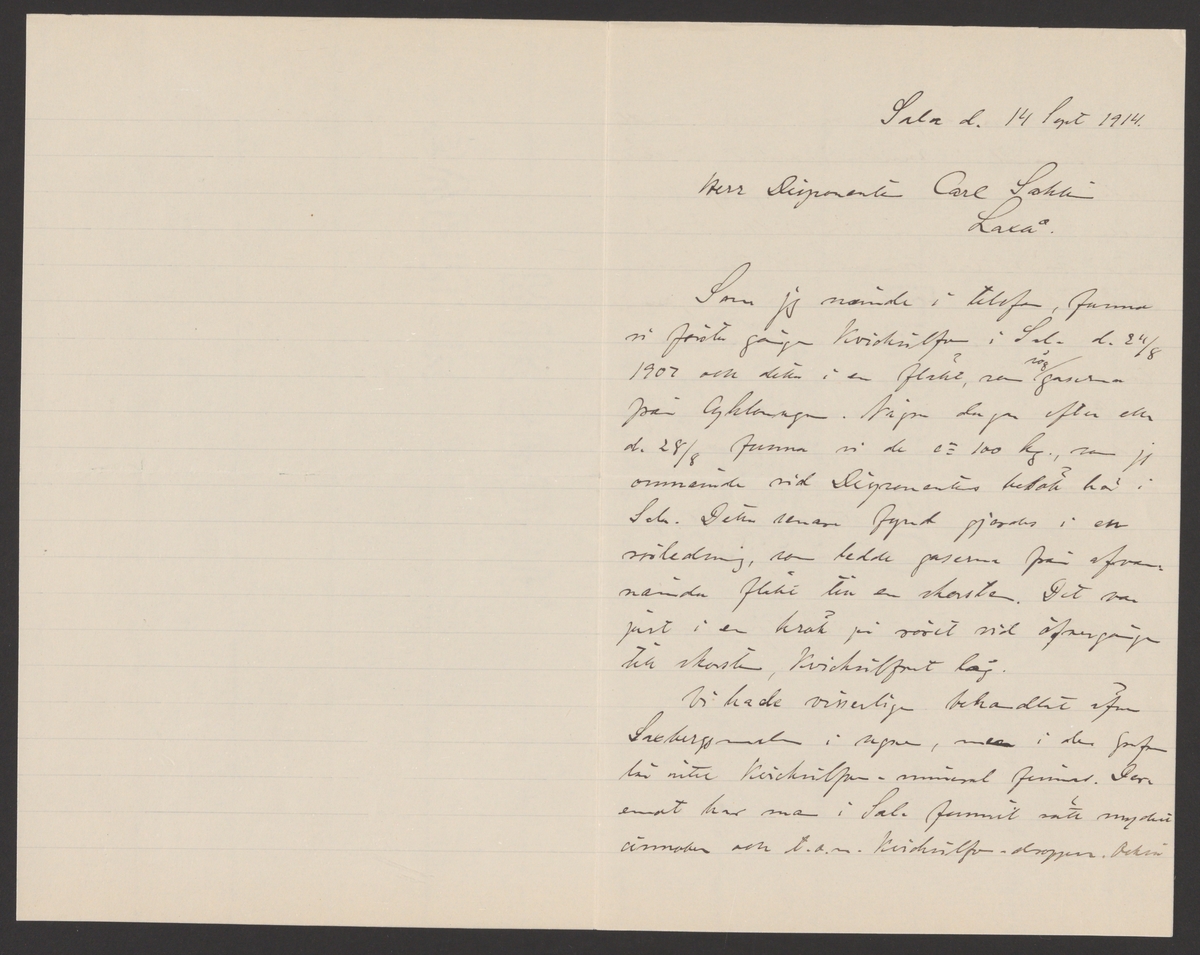 Sala d. 14 Sept 1914.
Herr Disponenten Carl Sahlin
Laxå.
Som jag nämnde i telefon, funno
vi första gången Kvicksilfver i Sala d. 24/8
1907 och detta i en fläkt, som sög gaserna
från Cyklonugnen. Några dagar efter eller
d. 28/8 funno vi de ca 100 kg., som jag
omnämnde vid Disponentens besök här i
Sala. Detta senare fynd gjordes i en
rörledning, som ledde gaserna från ofvan-
nämnda fläkt till en skorsten. Det var
just i en krök på röret vid öfvergången
till skorsten, Kvicksilfret låg.
Vi hade visserligen behandlat äfven
Saxbergsmalm i ugnen, men i den grufvan
lär intet Kvicksilfver-mineral finnas. Där-
emot har man i Sala funnit rätt mycket
cinnober och t.o.m. Kvicksilfver-droppar.